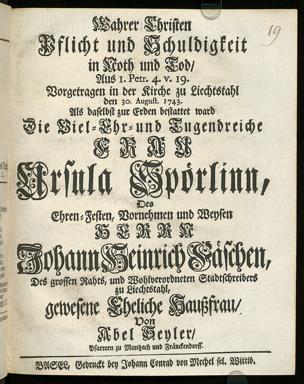 19
Wahrer Christen
Pflicht und Schuldigkeit
in Noth und Tod/
Aus I. Petr. 4. v. 19.
Vorgetragen in der Kirche zu Liechtstahl
den 30. August. 1743.
Als daselbst zur Erden bestattet ward
Die Viel-Ehr- und Tugendreiche
FRAU
Ursula Spörlinn,
Des
Ehren-Festen, Vornehmen und Weysen
HERRN
Johann Heinrich Fäschen,
Des grossen Rahts, und Wohlverordneten Stadtschreibers
zu Liechtstahl,
gewesene Eheliche Haußfrau/
Von
Abel Heyler/
Pfarrern zu Muttach und Fränckendorff.
BASEL, Gedruckt bey Johann Conrad von Mechel sel. Wittib.